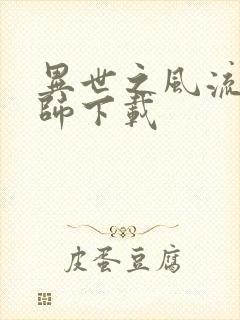 異世之風流
師下載
皮蛋豆腐